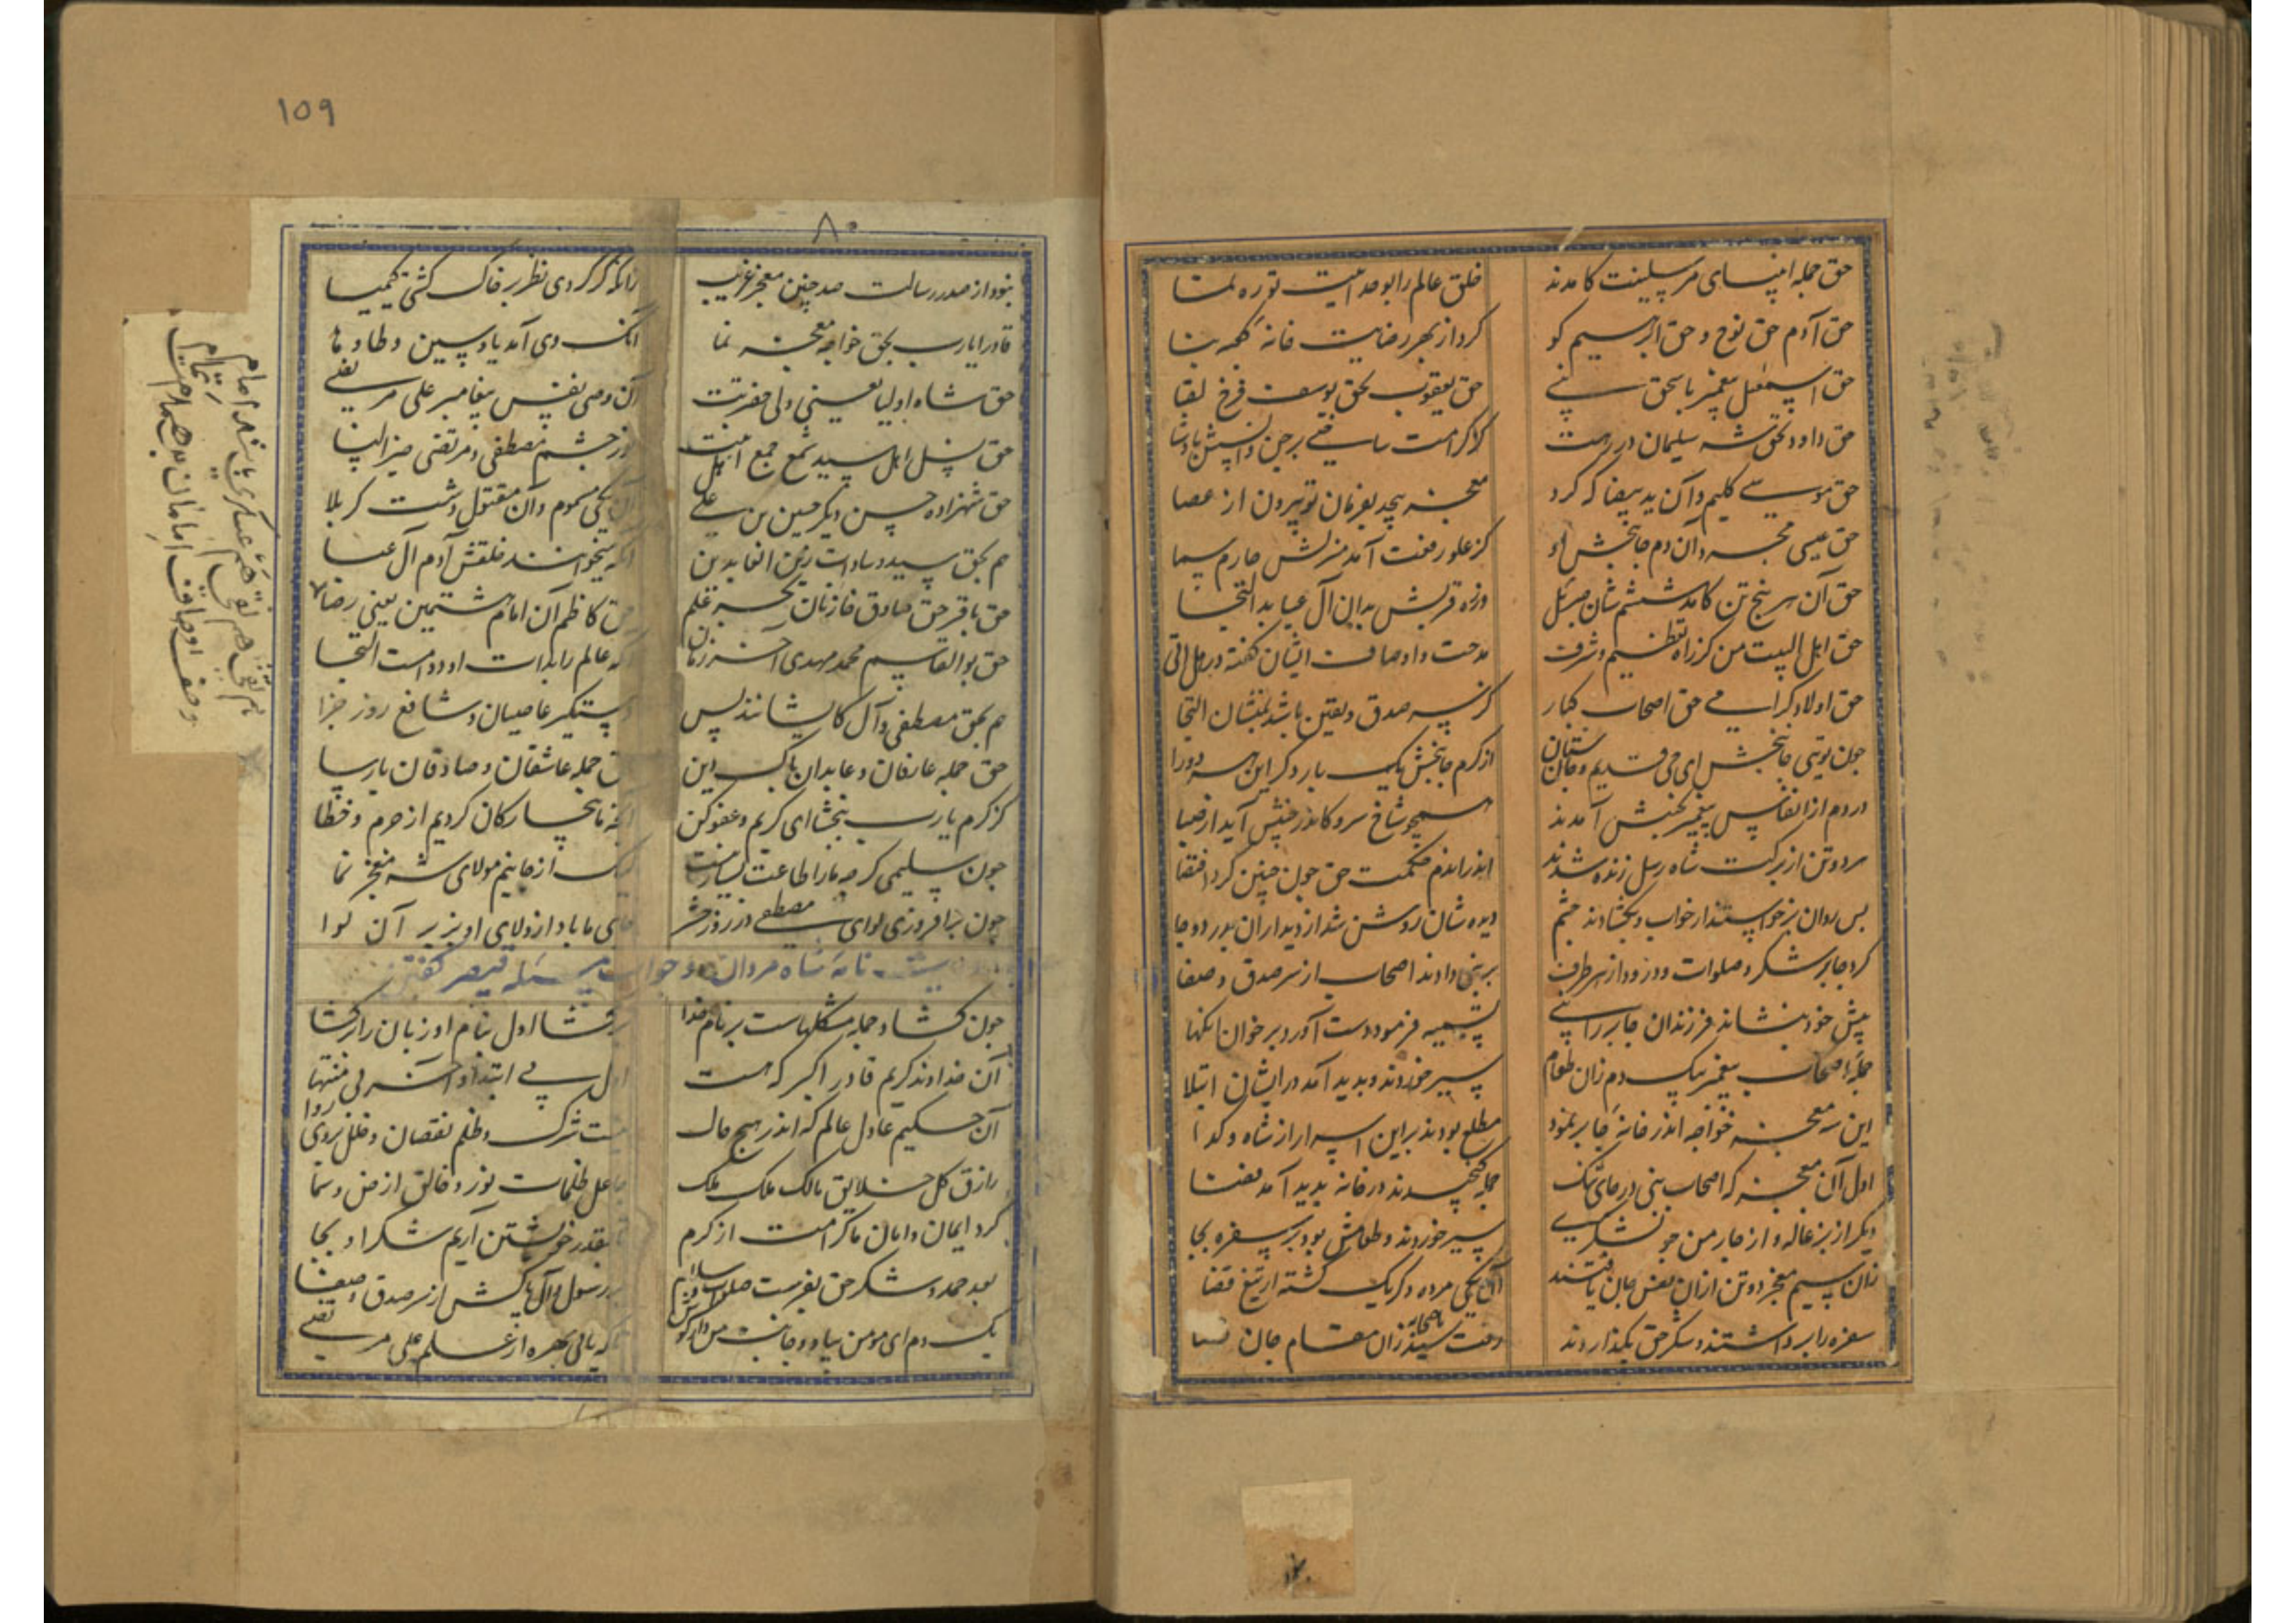 حق جمله انبیای مرسلینت کامدند خلق عالم را بوحدانیت تو ره نما
حق آدم حق نوح و حق ابرهیم کو کرد از بهر رضایت خانه کعبه بنا
حق اسمعیل پیغمبر باسحق نبی حق یعقوب بحق یوسف فرخ لقا
حق داود و بحق شه سلیمان در رهت کز کرامت ساختی بر جن و انسش پادشا
حق موسی کلیم و آن ید بیضا که کرد معجزه بیحد بفرمان تو بیرون از عصا
حق عیسی و آن دم جانبخش او کز علو رفعت آمد منزلش چارم سما
حق آن هر پنج تن کامد ششم شان جبرئیل بدان آل عبا بد التجا
حق اهل البیت من کز راه تعظیم و شرف مدحت و اوصاف ایشان گفته در هل اتی
حق اولاد کرامی حق اصحاب کبار کز سر صدق و یقین باشد بمنشان التجا
چون تویی جانبخش ای حی قدیم و جان ستان از کرم جانبخش یک بار دگر این هر دو را
در دم از انفاس پیغمبر بجنبش آمدند همچو شاخ سرو کاندر جنبش آید از صبا
هر دو تن از برکت شاه رسل زنده شدند اندر اندم حکمت حق چون چنین کرد اقتضا
پس روان برخواستند از خواب و بگشادند چشم دیده شان روشن شد از دیدار آن بدر دوجا
کرد جابر شکر و صلوات و درود از هر طرف بر نبی دادند اصحاب از سر صدق و صفا
پیش خود بنشاند فرزندان جابر را نبی فرمود دست آورد بر خوان
جمله اصحاب پیغمبر بیک دم زان طعام سیر خوردند و پدید آمد در ایشان ابتلا
این سه معجزه خواجه اندر خانه جابر نمود مطلع بودند بر این اسرار از شاه و گدا
اول آن معجزه که اصحاب نبی در جای تنگ جمله گنجیدند در خانه پدید آمد فضا
دیگر از بزغاله و از چار من جو سیر خوردند و طعامش بود بر سفره بجا
زان سیم معجز دو تن از آن نفس جان یافتند آن یکی مرده دگر یک کشته از تیغ قضا
سفره را برداشتند و شکر حق بگذاردند رفت سید باصحابه زان مقام جان
109
۸۰
بنود از صدر رسالت صد چنین معجز غریب زانکه گر کردی نظر بر خاک گشتی کیمیا
قادرا یارب بحق خواجه معجزه نما آنک وی آمد یاوسین و طا و ها
حق شاه اولیا یعنی ولی حضرتت آن وصی نفس پیغامبر علی مرتضی
حق نسل اهل سید شمع جمع اهل بیت نور چشم مصطفی و مرتضی خیر النسا
حق شهزاده حسن دیگر حسین بن علی آن یکی مسموم و آن مقتول دشت کربلا
هم بحق سید سادات زین العابدین آنکه میخوانند خلقش آدم آل عبا
حق باقر حق صادق حق کاظم آن امام هشتمین یعنی رضا
حق بوالقاسم محمد مهدی آخر زمان آنکه عالم را بذات او بود است التجا
هم بحق مصطفی و آل کایشانند پس دستگیر عاصیان و شافع روز جزا
حق جمله عارفان و عابدان پاک دین حق جمله عاشقان و صادقان پارسا
کز کرم یارب ببخشا ای کریم و عفو کن آنچه ما بیچارکان کردیم از جرم و خطا
چون سلیمی گرچه ما را طاعت بسیار نیست لیک از جانیم مولای شه معجز نما
چون برافروزی لوای مصطفی در روز حشر جای ما باد از ولای او بزیر آن لوا
نامه شاه مردان و جواب مسئله قیصر گفتن
چون گشاد جمله مشکلهاست بر نام خدا برگشا اول بنام او زبان راز گشا
آن خداوند کریم قادر اکبر که هست اول بی ابتدا و آخر بی منتها
آن حکیم عادل عالم که اندر هیچ حال نیست شرک و ظلم و نقصان و خلل بر وی روا
رازق کل خلایق مالک ملک ملک جاعل ظلمات نور و خالق ارض و سما
کرد ایمان و امان ما کرامت از کرم بقدر خویشتن آریم شکر او بجا
بعد حمد و شکر حق بفرست صلوات و سلام بر رسول و آل پاکش از سر صدق و صفا
یک دم ای مومن بیا و جانب من دار گوش تا که یابی بهره از علم علی مرتضی
هم تقی هم نقی هم عسکری باشد امام
وصف اوصاف امامان